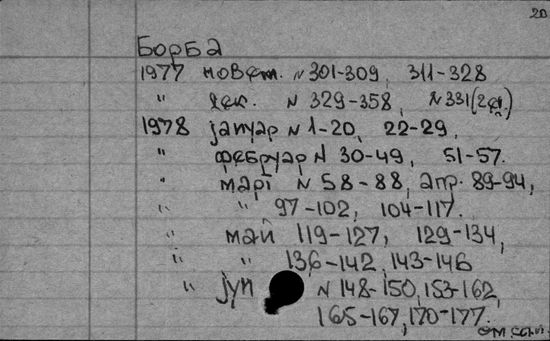 20
Борба
1977 новем. N 301-309, 311-328
" дек. N 329-358, N 331 (2ек.)
1978 јануар N 1-20, 22-29,
" фебруар N 30-49, 51-57.
" март N 58-88, апр. 89-94,
" " 97-102, 104-117.
" май 119-127, 129-134,
" " 136-142, 143-146
" јун N 148-150, 153-162,
165-167, 170-177.